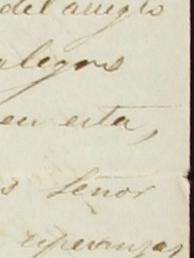 del arreglo
alegres
en esta,
s Señor
esperanzas